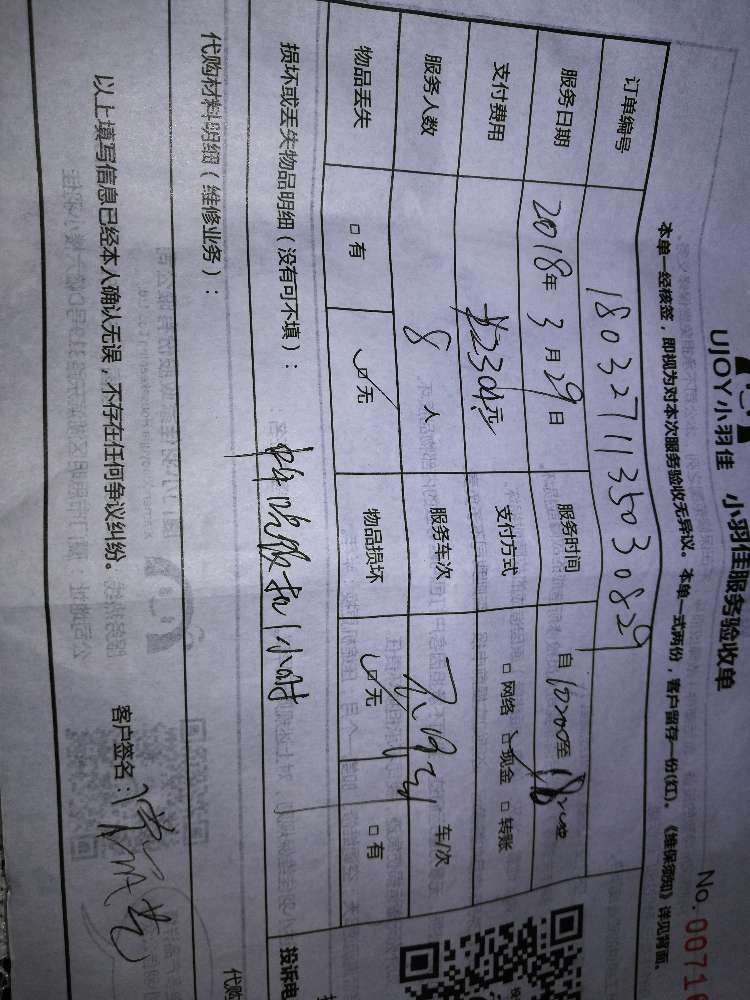 UJOY小羽佳 小羽佳服务验收单
No.: 0071
本单一经核签，即视为对本次服务验收无异议。本单一式两份，客户留存一份(红)。《维保须知》详见背面。
订单编号 18032711135030829
服务日期 2018年3月29日 服务时间 自10:00至18:00
支付费用 ¥2304元 支付方式 □网络 ☑现金 □转账
服务人数 8人 服务车次 车/次
物品丢失 □有 ☑无 物品损坏 ☑无 □有
损坏或丢失物品明细（没有可不填）： 吃饭扣1小时
投诉电
代购材料明细（维修业务）：
代购
以上填写信息已经本人确认无误，不存在任何争议纠纷。 客户签名：